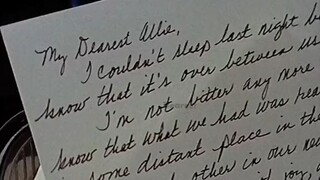 My Dearest Allie,
I couldn't sleep last night b
know that it's over between us
I'm not bitter any more
know that what we had was rea
some distant place in the
each other in our ne
joy, a